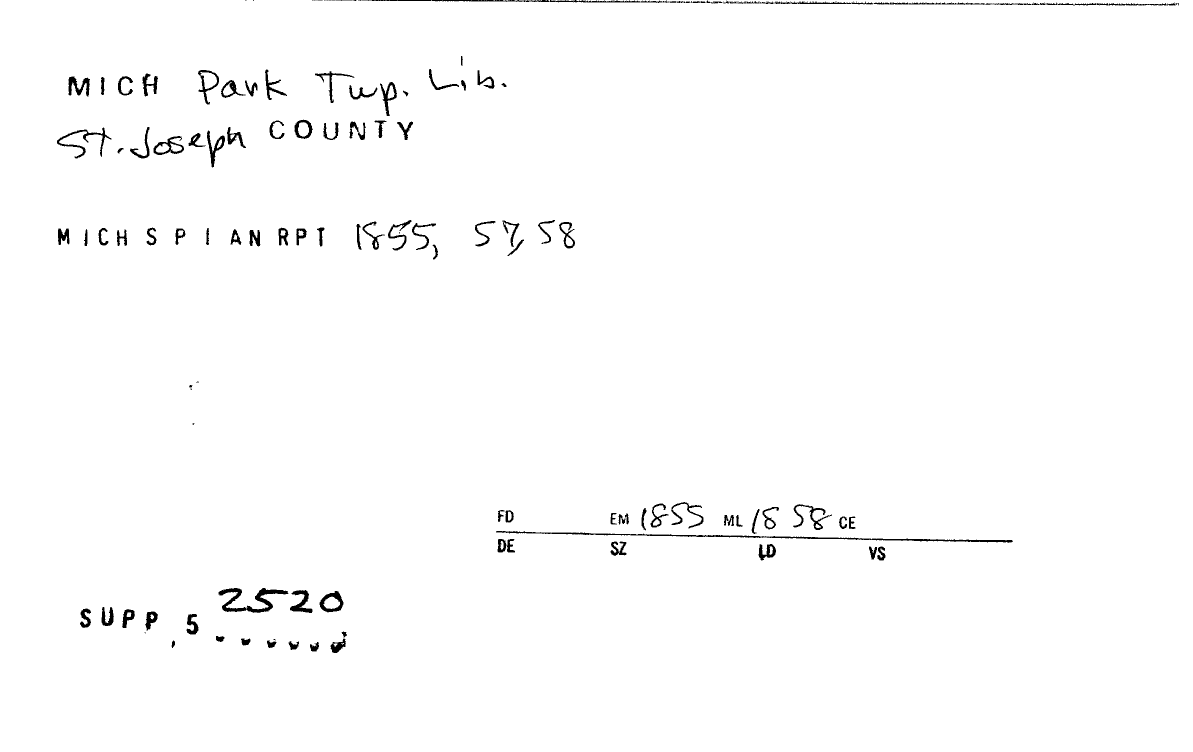 MICH Park Twp. Lib.
St. Joseph COUNTY
MICH S P I AN RPT 1855, 57, 58
FD EM 1855 ML 1858 CE
DE SZ LD VS
SUPP, 5 2520